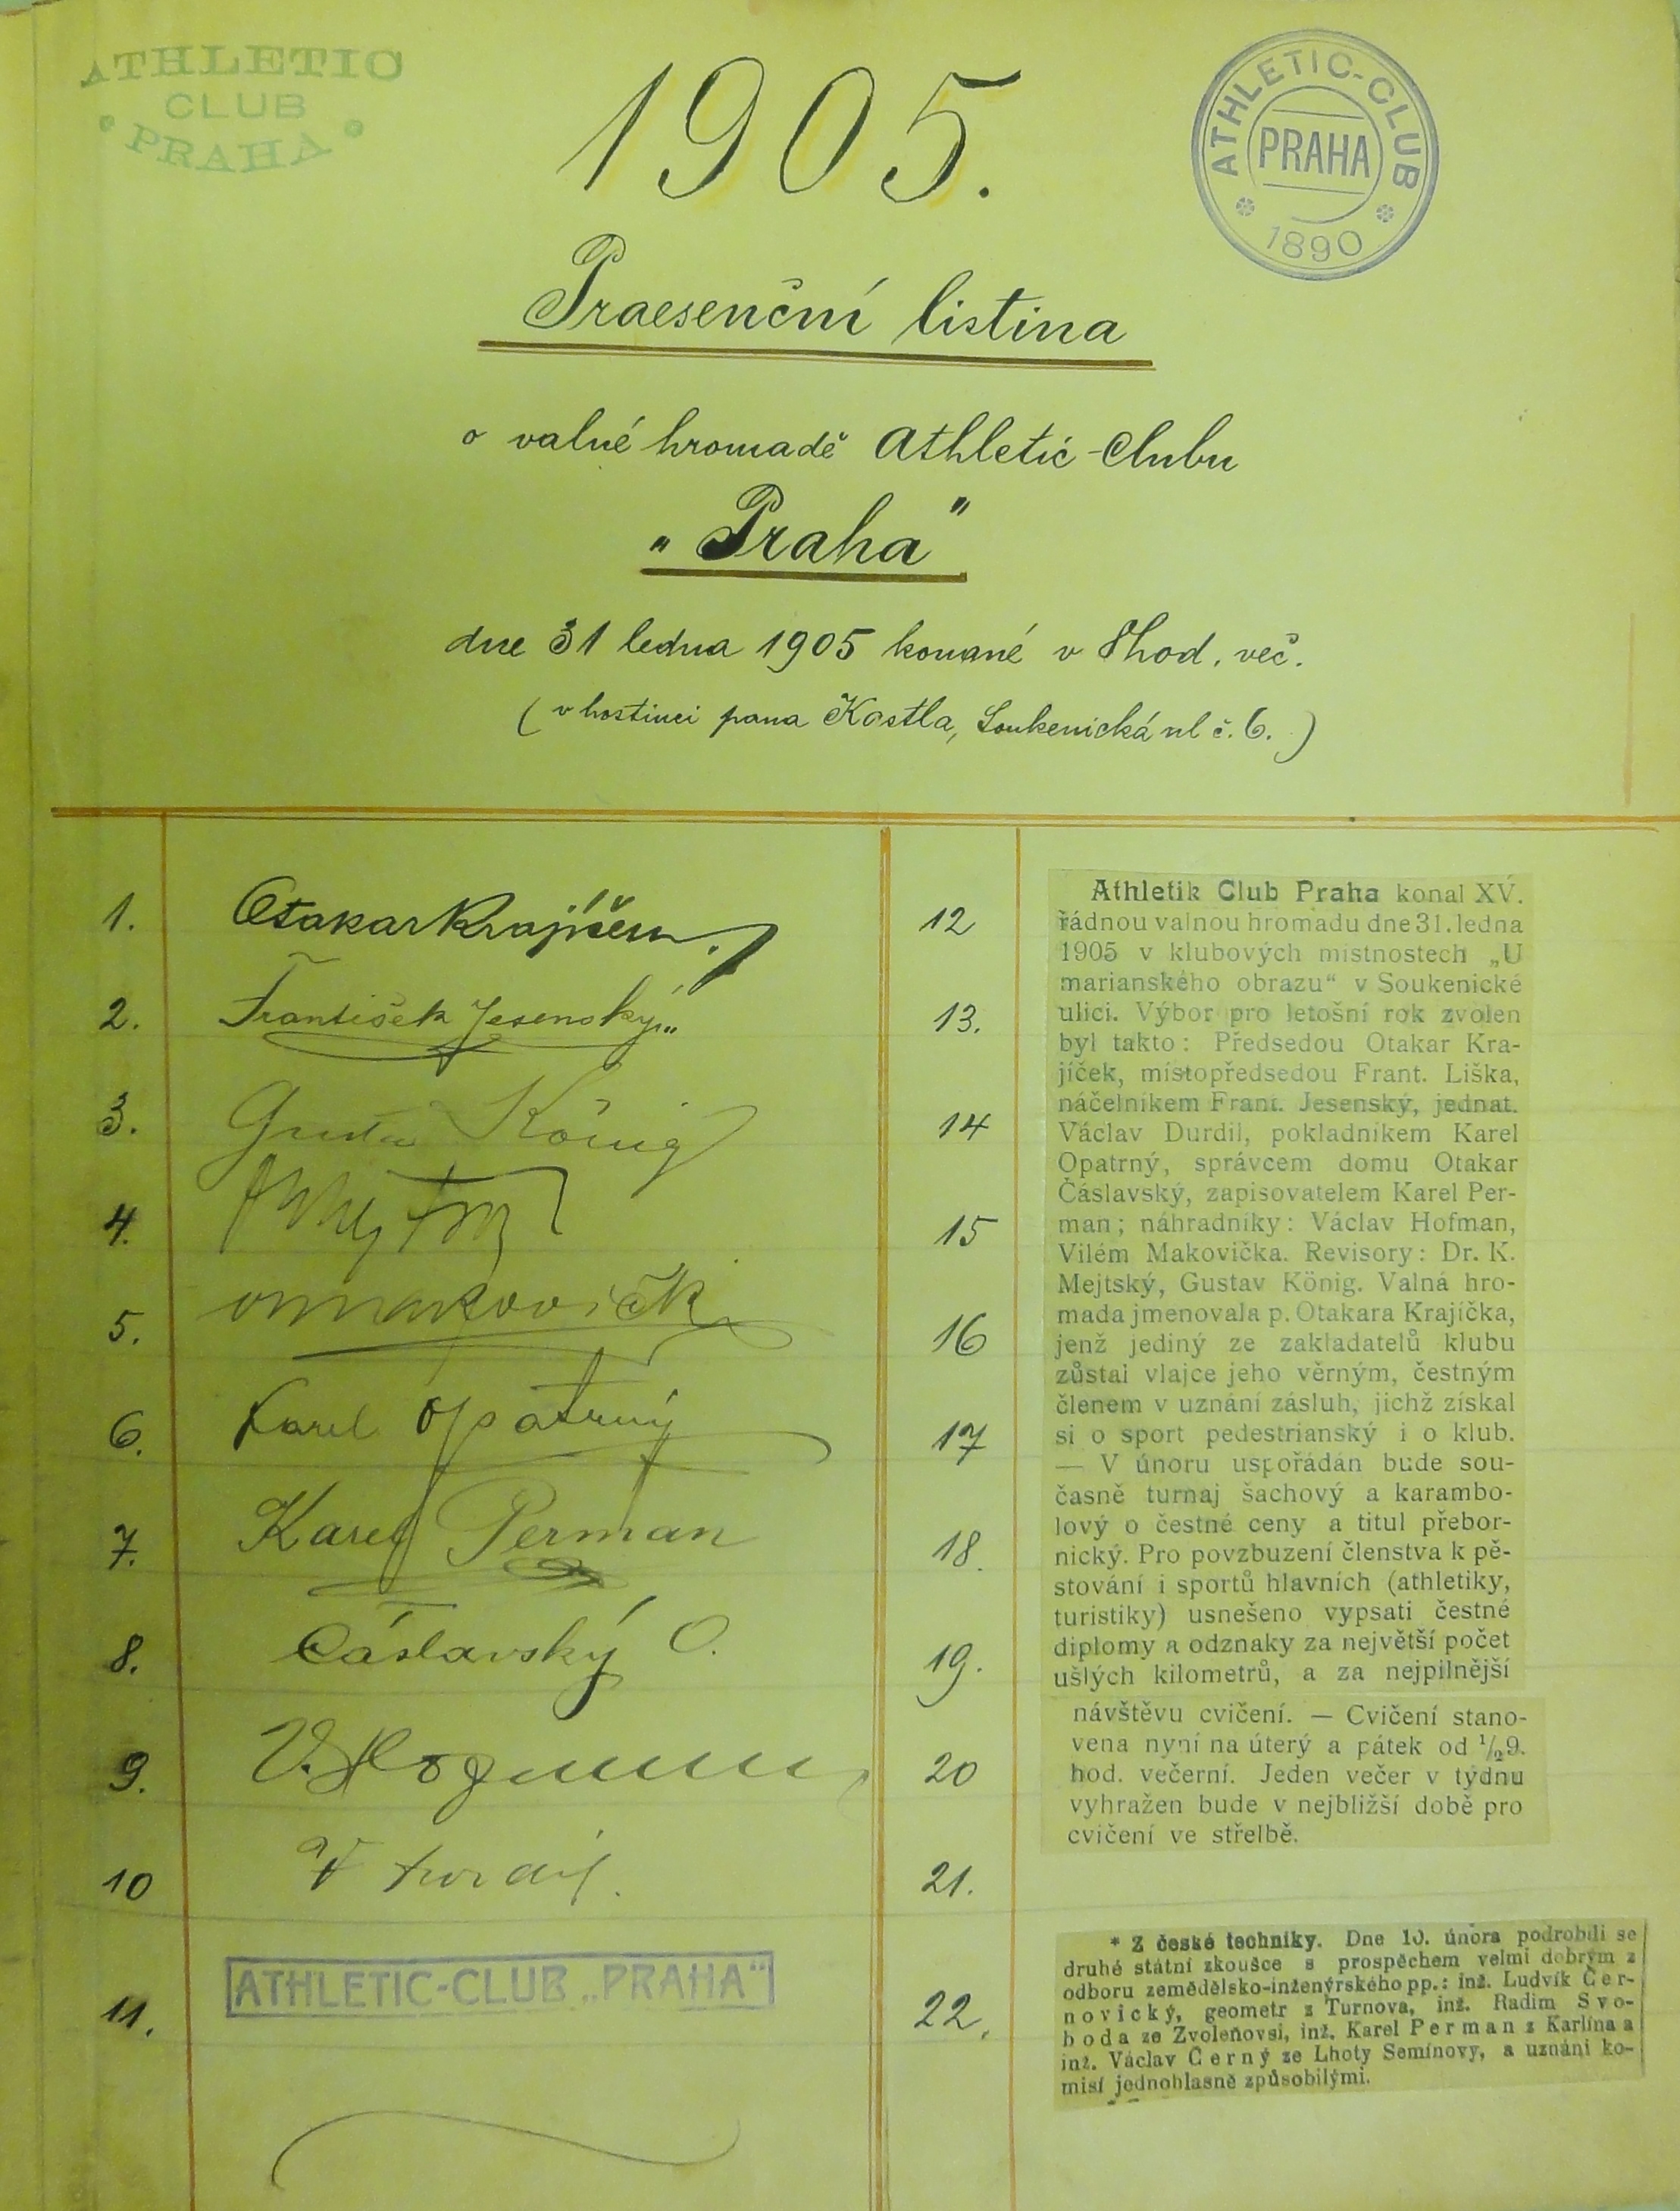 ATHLETIC
CLUB
PRAHA
1905.
ATHLETIC-CLUB
PRAHA
1890
Praesenční listina
o valné hromadě Athletic-Clubu
„Praha"
dne 31 ledna 1905 konané v 8 hod. več.
(v hostinci pana Kostla, Soukenická ul č. 6.)
1. Otakar Krajíček
2. František Jesenský
3. Gustav König
4.
5. V Makovička
6. Karel Opatrný
7. Karel Perman
8. Čáslavský O.
9. V. Hofman
10 V Durdil.
11. ATHLETIC-CLUB „PRAHA"
12
13.
14
15
16
17
18.
19.
20
21.
22.
Athletik Club Praha konal XV.
řádnou valnou hromadu dne 31. ledna
1905 v klubových místnostech „U
marianského obrazu“ v Soukenické
ulici. Výbor pro letošní rok zvolen
byl takto: Předsedou Otakar Kra-
jíček, místopředsedou Frant. Liška,
náčelníkem Frant. Jesenský, jednat.
Václav Durdil, pokladníkem Karel
Opatrný, správcem domu Otakar
Čáslavský, zapisovatelem Karel Per-
man; náhradníky: Václav Hofman,
Vilém Makovička. Revisory: Dr. K.
Mejtský, Gustav König. Valná hro-
mada jmenovala p. Otakara Krajíčka,
jenž jediný ze zakladatelů klubu
zůstal vlajce jeho věrným, čestným
členem v uznání zásluh, jichž získal
si o sport pedestrianský i o klub.
— V únoru uspořádán bude sou-
časně turnaj šachový a karambo-
lový o čestné ceny a titul přebor-
nický. Pro povzbuzení členstva k pě-
stování i sportů hlavních (athletiky,
turistiky) usnešeno vypsati čestné
diplomy a odznaky za největší počet
ušlých kilometrů, a za nejpilnější
návštěvu cvičení. — Cvičení stano-
vena nyní na úterý a pátek od ½9.
hod. večerní. Jeden večer v týdnu
vyhražen bude v nejbližší době pro
cvičení ve střelbě.
* Z české techniky. Dne 10. února podrobili se
druhé státní zkoušce s prospěchem velmi dobrým z
odboru zemědělsko-inženýrského pp.: inž. Ludvík Čer-
novický, geometr z Turnova, inž. Radim Svo-
boda ze Zvoleňovsi, inž. Karel Perman z Karlína a
inž. Václav Černý ze Lhoty Semínovy, a uznáni ko-
misí jednohlasně způsobilými.